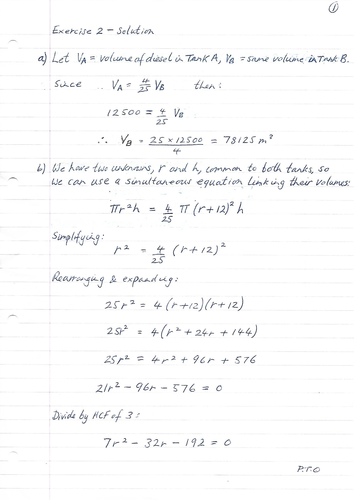 ①
Exercise 2 - Solution
a) Let V_A = volume of diesel in Tank A, V_B = same volume in Tank B.
Since V_A = 4/25 V_B then:
12500 = 4/25 V_B
∴ V_B = 25 × 12500 / 4 = 78125 m³
b) We have two unknowns, r and h, common to both tanks, so
we can use a simultaneous equation linking their volumes:
πr²h = 4/25 π(r+12)²h
Simplifying:
r² = 4/25 (r+12)²
Rearranging & expanding:
25r² = 4(r+12)(r+12)
25r² = 4(r² + 24r + 144)
25r² = 4r² + 96r + 576
21r² - 96r - 576 = 0
Divide by HCF of 3:
7r² - 32r - 192 = 0
P.T.O